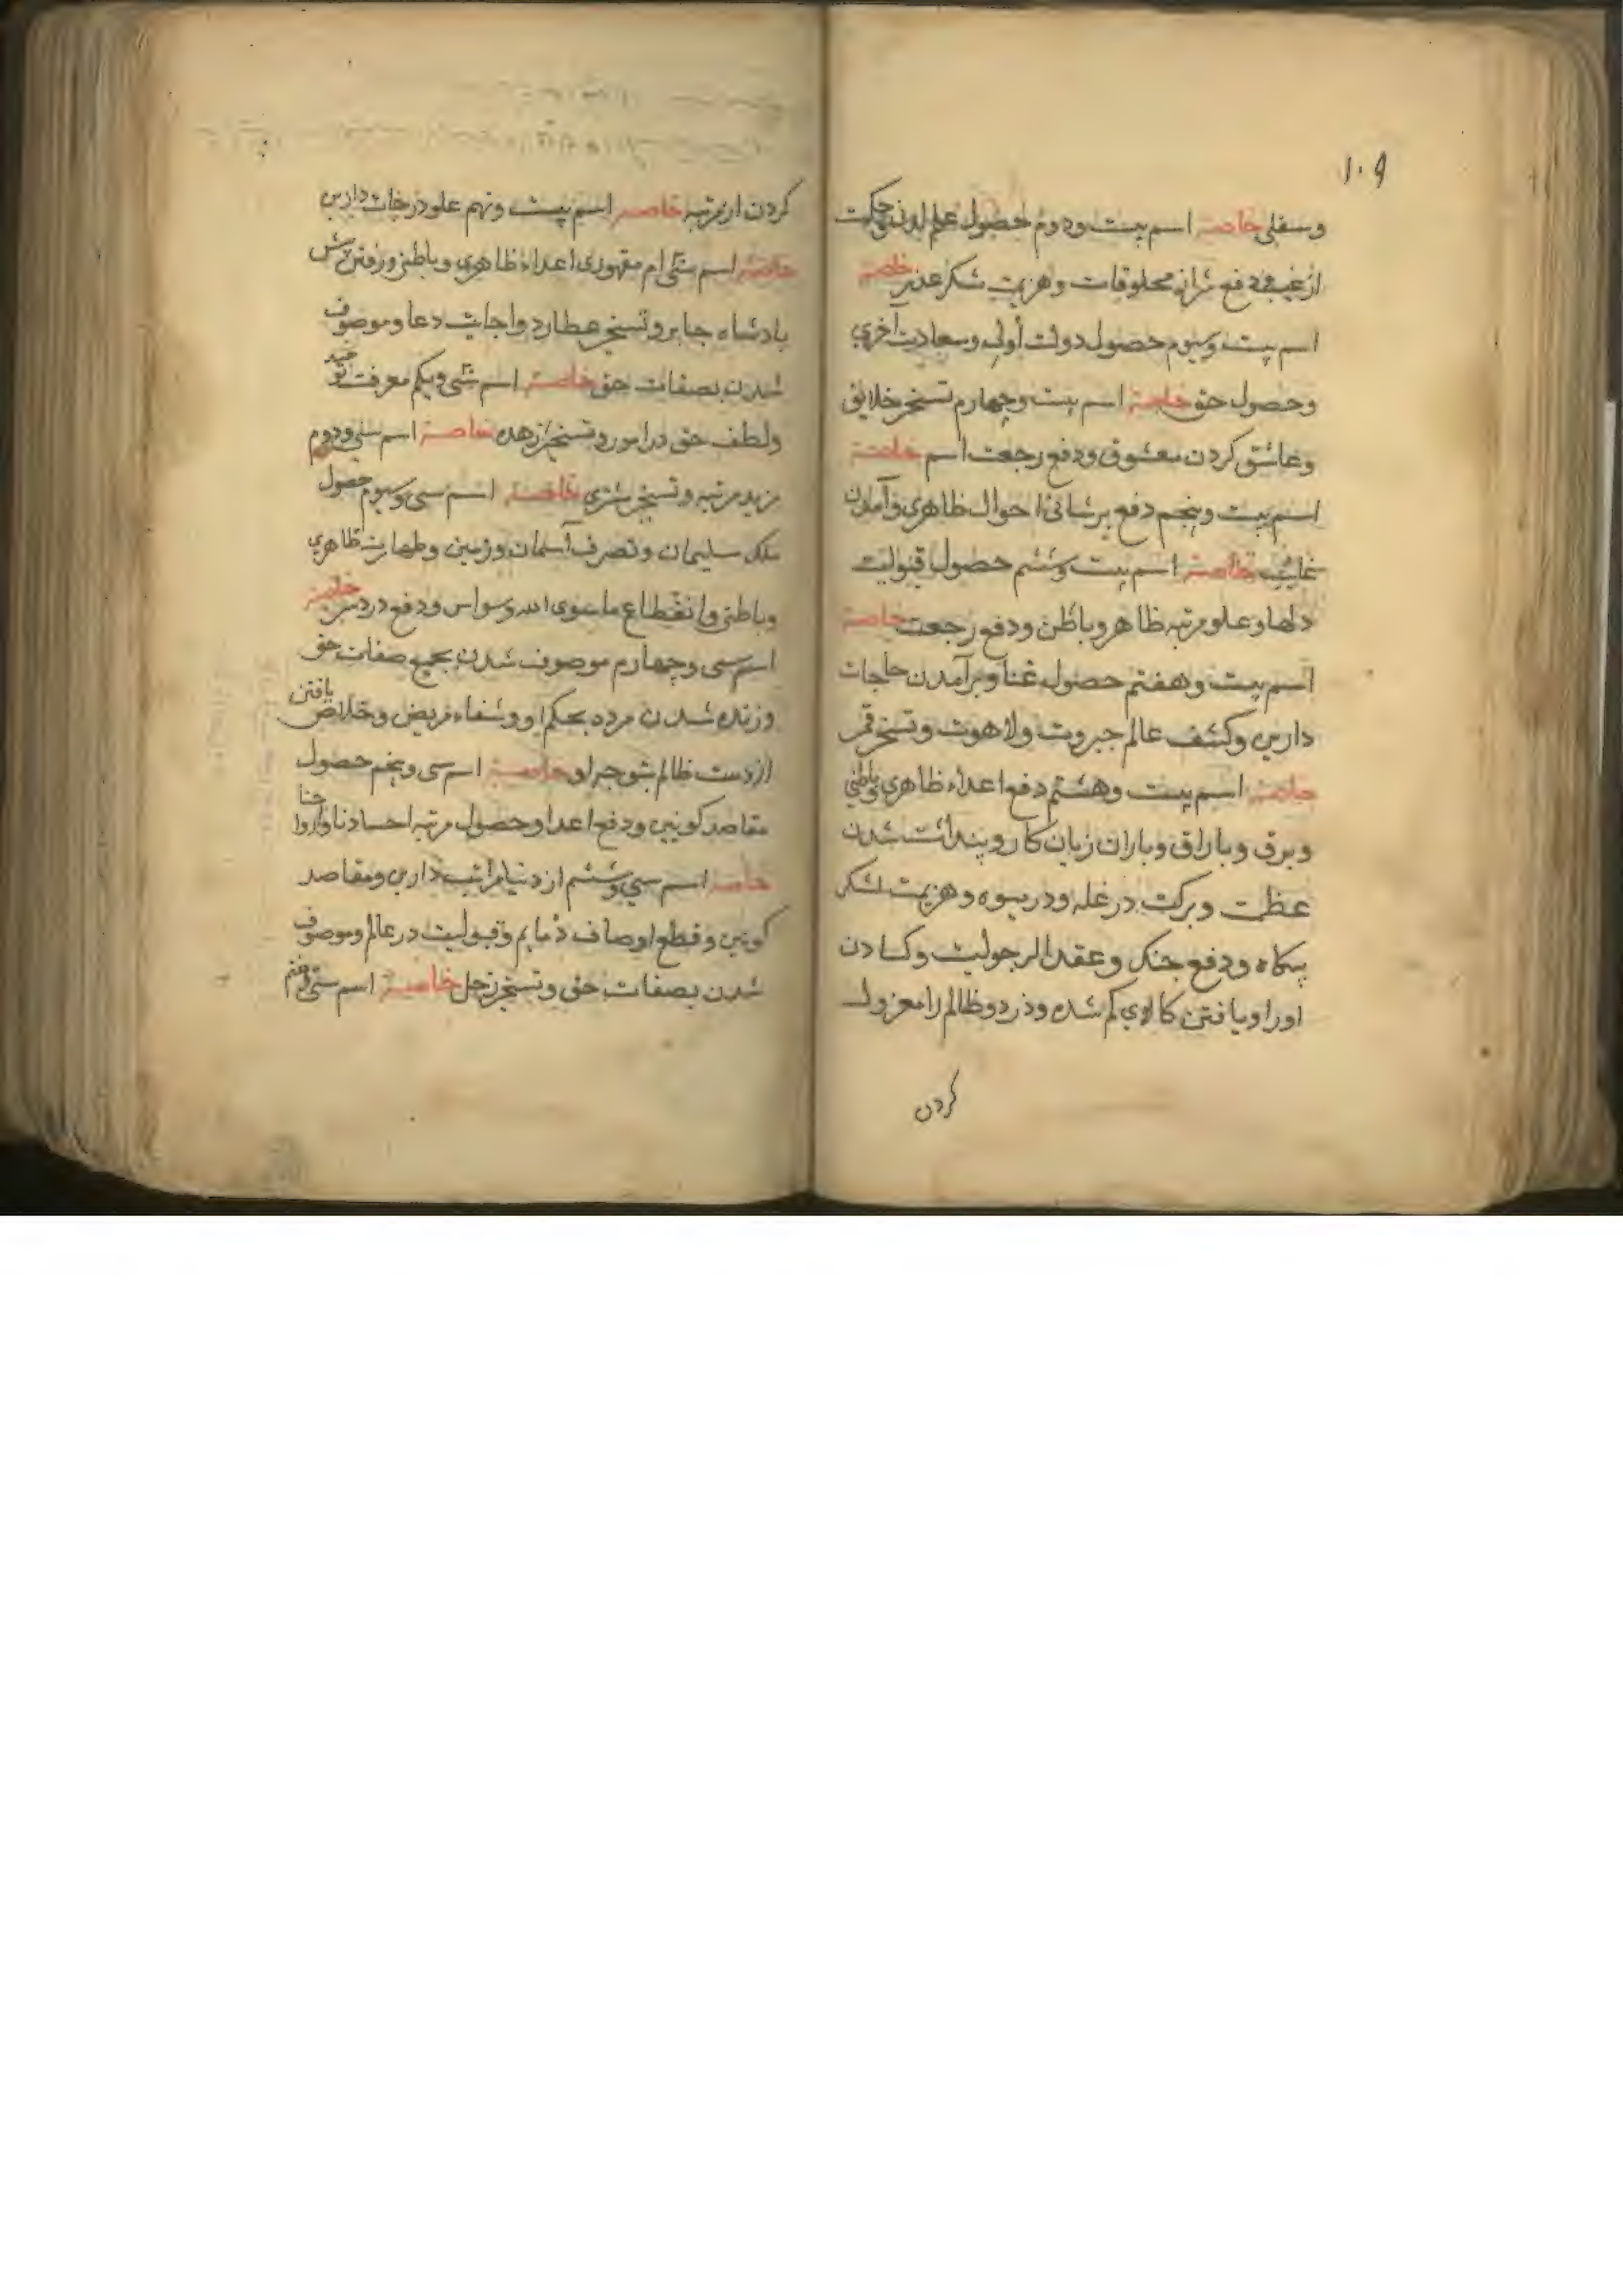 ۱۰۹
وسفلی خاصیة اسم بیست ودوم حصول علم لدنی حکمت
از غیب ودفع شرانه مخلوقات وهزیمت شکر غدیر خاصیة
اسم بیست وسیوم حصول دولت أولی وسعادت آخری
وحصول حق خاصیة اسم بیست وچهارم تسخیر خلایق
وعاشق کردن معشوق ودفع رجعت اسم خاصیة
اسم بیست وپنجم دفع پرشانئ احوال ظاهری وآمدن
غایب خاصیة اسم بیست وششم حصول قبولیت
دلها وعلو مرتبه ظاهر وباطن ودفع رجعت خاصیة
اسم بیست وهفتم حصول غنا وبرآمدن حاجات
دارین وکشف عالم جبروت ولاهوت وتسخیر قمر
خاصیة اسم بیست وهشتم دفع اعداء ظاهری وباطنی
وبرق وباران زیان کار شدن
عظمت وبرکت در غله ودر میوه وهزیمت لشکر
ودفع جنک وعقد الرجولیت وکسادن
اورا ویافتن کالای کم شده ودزد وظالم را معزول
کردن
کردن از مرتبه خاصیة اسم بیست ونهم علو درجات دارین
خاصیة اسم سی ام مقهوری اعداء ظاهری وباطنی ورفتن پیش
بادشاه جابر وتسخیر عطارد واجابت دعا وموصوف
شدن بصفات حق خاصیة اسم سی ویکم معرفت توحید
ولطف حق در امور وتسخیر زهده خاصیة اسم سی ودوم
مزید مرتبه وتسخیر مشتری خاصیة اسم سی وسیوم حصول
ملک سلیمان وتصرف آسمان وزمین وطهارت ظاهری
وباطنی وانقطاع ماسوی الله وسواس ودفع درد سر خاصیة
اسم سی وچهارم موصوف شدن بجمیع صفات حق
وزنده شدن مرده بحکم او وشفاء مریض وخلاص یافتن
از دست ظالم خاصیة اسم سی وپنجم حصول
مقاصد کونین ودفع اعدا وحصول مرتبه
خاصیة اسم سی وششم از دنیا مراتب دارین ومقاصد
کونین وقطع اوصاف ذمایم وقبولیت در عالم وموصوف
شدن بصفات حق وتسخیر زحل خاصیة اسم سی وهفتم